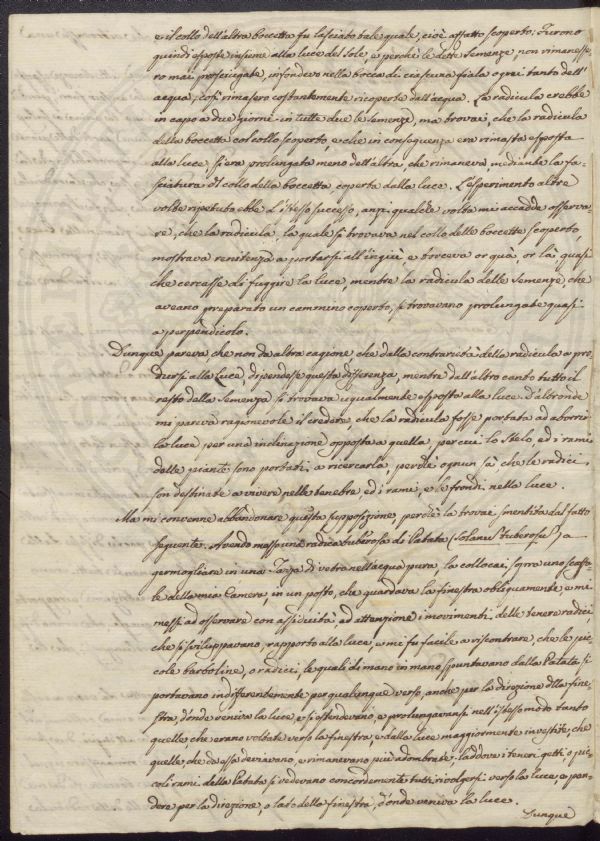 e il collo dell'altra boccetta fu lasciato tale quale, cioè affatto scoperto. Furono
quindi esposte insieme alla luce del sole, e perchè le dette semenze non rimanesse-
ro mai prosciugate, infondevo nella bocca di ciascuna fiala ogni tanto dell'
acqua, così rimasero costantemente ricoperte dall'acqua. La radicula crebbe
in capo a due giorni in tutte due le semenze, ma trovai, che la radicula
della boccetta col collo scoperto, e che in conseguenza era rimasta esposta
alla luce si era prolungata meno dell'altra, che rimaneva, mediante la fa-
sciatura al collo della boccetta, coperta dalla luce. L'esperimento altre
volte ripetuto ebbe l'istesso successo, anzi qualche volta mi accadde osserva-
re, che la radicula, la quale si trovava nel collo delle boccette scoperto,
mostrava renitenza a portarsi all'ingiù e torceva or quà, or là, quasi
che cercasse di fuggire la luce, mentre la radicula delle semenze, che
aveano preparato un cammino coperto, si trovavano prolungate quasi
a perpendicolo.
Dunque pareva, che non da altra cagione, che dalla contrarietà della radicula a pro-
dursi alla luce, dipendesse questa differenza, mentre dall'altro canto tutto il
resto della semenza si trovava ugualmente esposto alla luce. D'altronde
mi pareva ragionevole il credere, che la radicula fosse portata ad aborrir
la luce per una inclinazione opposta a quella, per cui lo stelo, ed i rami
delle piante sono portati a ricercarla, perchè ognun sà che le radici
son destinate a vivere nelle tenebre, ed i rami, e le frondi nella luce.
Ma mi convenne abbandonare questa supposizione, perchè la trovai smentita dal fatto
seguente. Avendo messo una radica tuberosa di Patata (Solanu Tuberosu) a
germogliare in una Tazza di vetro nell'acqua pura, la collocai sopra uno scaffa-
le della mia Camera, in un posto, che guardava la finestra obliquamente, e mi
messi ad osservare con assiduità, ed attenzione i movimenti delle tenere radici
che si sviluppavano, rapporto alla luce, e mi fu facile a riscontrare, che le pic-
cole barboline, o radici, le quali di mano in mano spuntavano dalla Patata si
portavano indiferentemente per qualunque verso, anche per la direzione della fine-
stra, d'onde veniva la luce, e si estendevano, e prolungavansi nell'istesso modo tanto
quelle, che erano voltate verso la finestra, e dalla luce maggiormente investite, che
quelle, che da essa deviavano, e rimanevano più adombrate. Laddove i teneri getti, o pic-
coli rami della Patata si vedevano concordemente tutti rivolgersi verso la luce, o pen-
dere per la direzione, o lato della finestra, d'onde veniva la luce.
Dunque